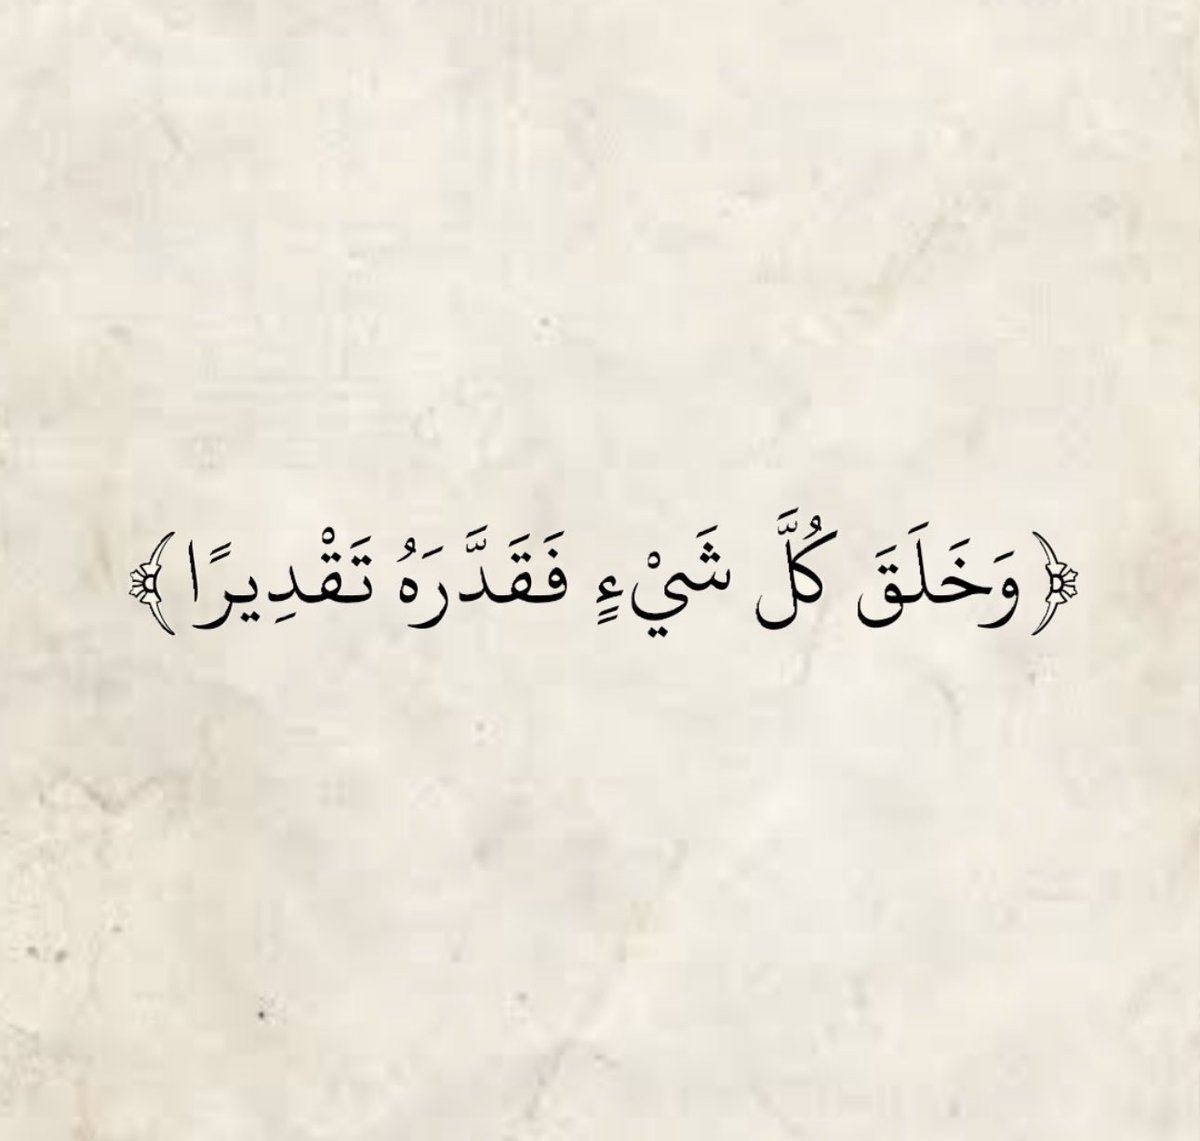 ﴿وَخَلَقَ كُلَّ شَيْءٍ فَقَدَّرَهُ تَقْدِيرًا﴾